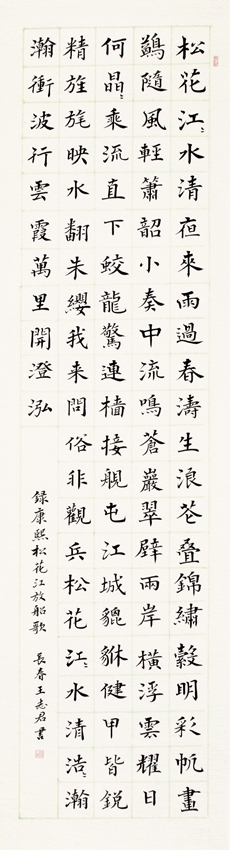 松花江〻水清夜來雨過春濤生浪花叠錦繡縠明彩帆畫
鷁隨風輕簫韶小奏中流鳴蒼巖翠壁兩岸橫浮雲耀日
何晶〻乘流直下蛟龍驚連檣接艦屯江城貔貅健甲皆銳
精旌旄映水翻朱纓我来問俗非觀兵松花江〻水清浩〻瀚
瀚衝波行雲霞萬里開澄泓
錄康熙松花江放船歌 長春王志君書